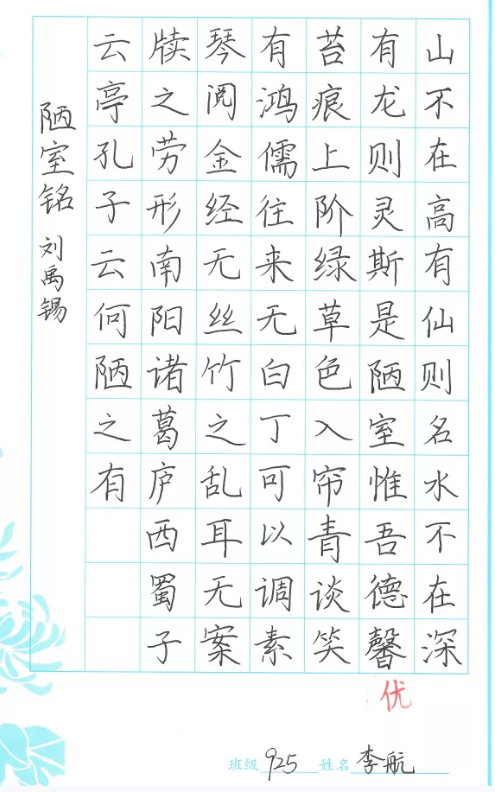 山不在高有仙则名水不在深
有龙则灵斯是陋室惟吾德馨
苔痕上阶绿草色入帘青谈笑
有鸿儒往来无白丁可以调素
琴阅金经无丝竹之乱耳无案
牍之劳形南阳诸葛庐西蜀子
云亭孔子云何陋之有
陋室铭 刘禹锡
优
班级 925 姓名 李航